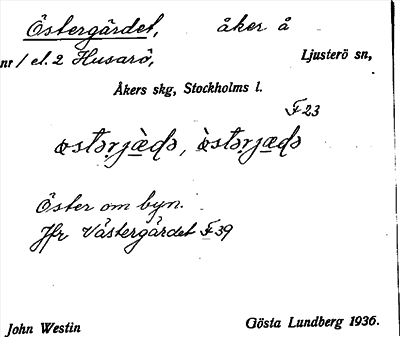 Östergärdet, åker å
nr 1 el. 2 Husarö, Ljusterö sn,
Åkers skg, Stockholms l.
F 23
Öster om byn.
Jfr Västergärdet F 39
John Westin Gösta Lundberg 1936.